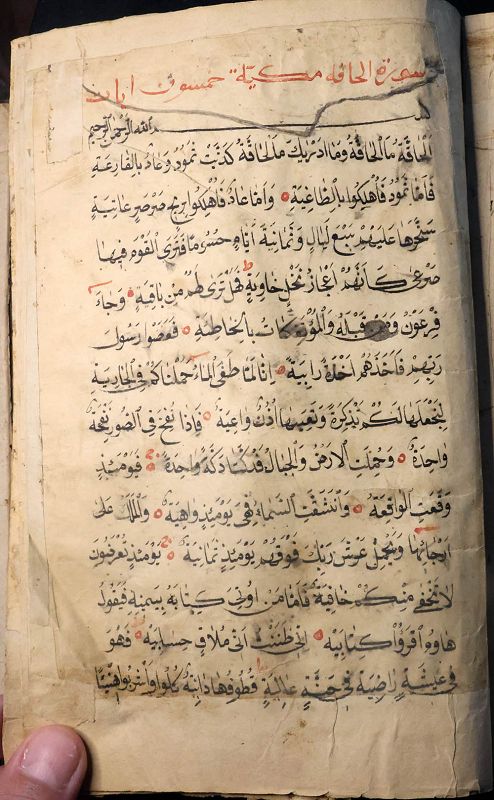 سورة الحاقه مكيّة خمسون ايات
بسم الله الرحمن الرحيم
اَلْحَاقَّةُ مَا الْحَاقَّةُ وَمَا اَدْرٰيكَ مَا الْحَاقَّةُ كَذَّبَتْ ثَمُودُ وَعَادٌ بِالْقَارِعَةِ
فَاَمَّا ثَمُودُ فَاُهْلِكُوا بِالطَّاغِيَةِ وَاَمَّا عَادٌ فَاُهْلِكُوا بِرِيحٍ صَرْصَرٍ عَاتِيَةٍ
سَخَّرَهَا عَلَيْهِمْ سَبْعَ لَيَالٍ وَثَمَانِيَةَ اَيَّامٍ حُسُومًا فَتَرَى الْقَوْمَ فِيهَا
صَرْعٰى كَاَنَّهُمْ اَعْجَازُ نَخْلٍ خَاوِيَةٍ فَهَلْ تَرٰى لَهُمْ مِنْ بَاقِيَةٍ وَجَاءَ
فِرْعَوْنُ وَمَنْ قَبْلَهُ وَالْمُؤْتَفِكَاتُ بِالْخَاطِئَةِ فَعَصَوْا رَسُولَ
رَبِّهِمْ فَاَخَذَهُمْ اَخْذَةً رَابِيَةً اِنَّا لَمَّا طَغَى الْمَاءُ حَمَلْنَاكُمْ فِى الْجَارِيَةِ
لِنَجْعَلَهَا لَكُمْ تَذْكِرَةً وَتَعِيَهَا اُذُنٌ وَاعِيَةٌ فَاِذَا نُفِخَ فِى الصُّورِ نَفْخَةٌ
وَاحِدَةٌ وَحُمِلَتِ الْاَرْضُ وَالْجِبَالُ فَدُكَّتَا دَكَّةً وَاحِدَةً فَيَوْمَئِذٍ
وَقَعَتِ الْوَاقِعَةُ وَانْشَقَّتِ السَّمَاءُ فَهِىَ يَوْمَئِذٍ وَاهِيَةٌ وَالْمَلَكُ عَلٰى
اَرْجَائِهَا وَيَحْمِلُ عَرْشَ رَبِّكَ فَوْقَهُمْ يَوْمَئِذٍ ثَمَانِيَةٌ يَوْمَئِذٍ تُعْرَضُونَ
لَا تَخْفٰى مِنْكُمْ خَافِيَةٌ فَاَمَّا مَنْ اُوتِىَ كِتَابَهُ بِيَمِينِهِ فَيَقُولُ
هَاؤُمُ اقْرَؤُا كِتَابِيَهْ اِنِّى ظَنَنْتُ اَنِّى مُلَاقٍ حِسَابِيَهْ فَهُوَ
فِى عِيشَةٍ رَاضِيَةٍ فِى جَنَّةٍ عَالِيَةٍ قُطُوفُهَا دَانِيَةٌ كُلُوا وَاشْرَبُوا هَنِيئًا